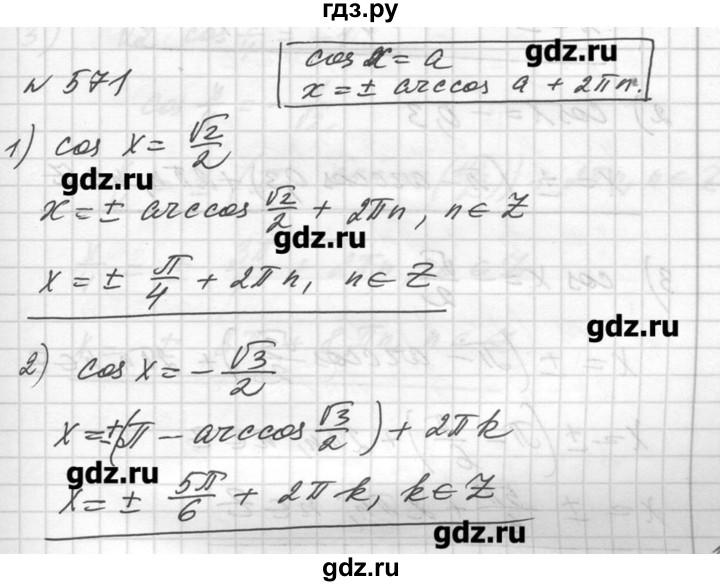 гдз.ру
№ 571
cos x = a
x = ± arccos a + 2πn.
gdz.ru
1) cos x = √2/2
gdz.ru
x = ± arccos √2/2 + 2πn, n ∈ Z
gdz.ru
x = ± π/4 + 2πn, n ∈ Z
gdz.ru
2) cos x = - √3/2
x = ±(π - arccos √3/2) + 2πk
gdz.ru
x = ± 5π/6 + 2πk, k ∈ Z
gdz.ru